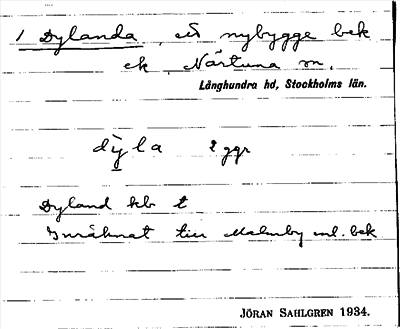 1 Dylanda, ett nybygge bek
ek Närtuna sn.
Långhundra hd, Stockholms län.
dỳla 2 ggr
Dyland kb t
Inräknat till Malmby enl. bek
JÖRAN SAHLGREN 1934.